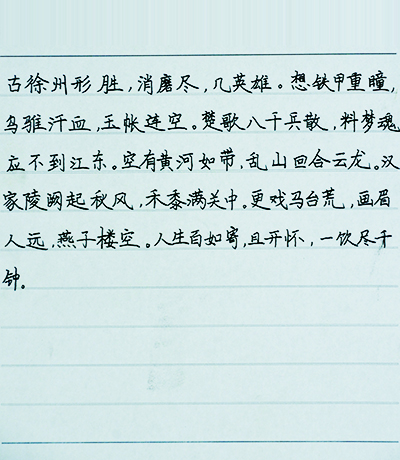 古徐州形胜,消磨尽,几英雄。想铁甲重瞳,
乌骓汗血,玉帐连空。楚歌八千兵散,料梦魂
应不到江东。空有黄河如带,乱山回合云龙。汉
家陵阙起秋风,禾黍满关中。更戏马台荒,画眉
人远,燕子楼空。人生百如寄,且开怀,一饮尽千
钟。